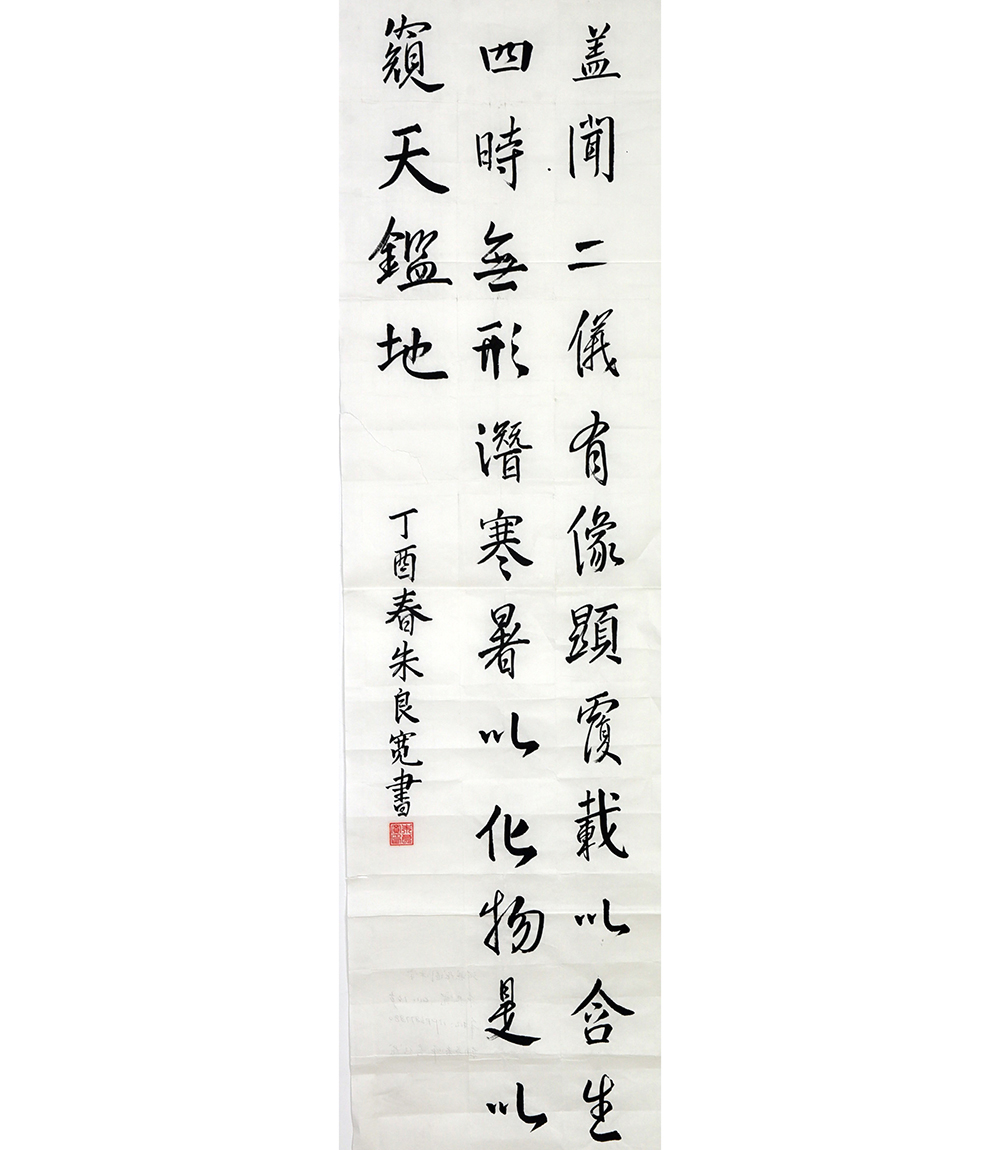 盖聞二儀有像顕覆載以含生
四時無形潛寒暑以化物是以
窺天鑑地
丁酉春朱良宽書